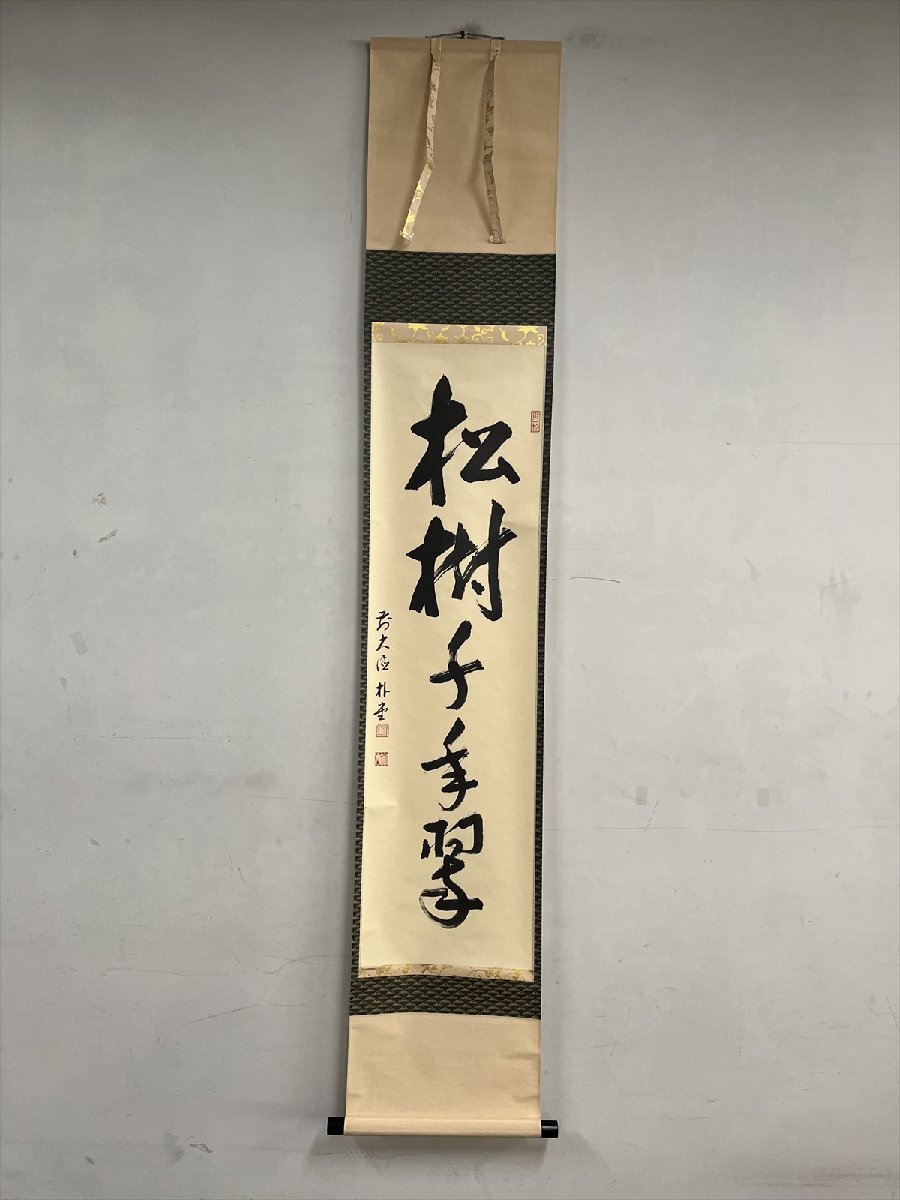 松樹千年翠
前大徳朴堂